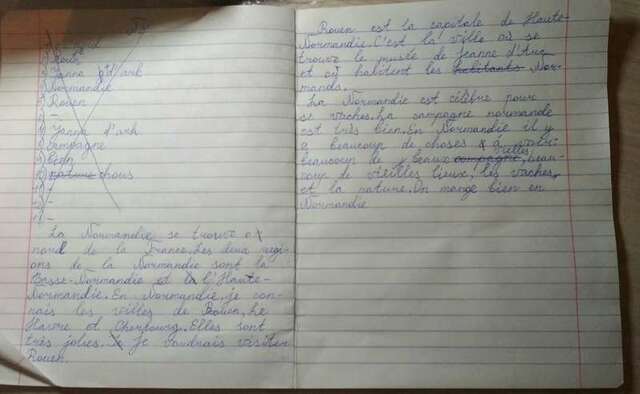 Rouen
Janna d'ark
Normandie
Rouen
-
Janna d'ark
campagne
-
-
-
La Normandie se trouve a
nord de la France. Les deux regi-
ons de la Normandie sont la
Basse-Normandie et la l'Haute-
Normandie. En Normandie, je con-
nais les villes de Rouen, Le
Havre et Cherbourg. Elles sont
très jolies. Je je voudrais visiter
Rouen.
Rouen est la capitale de Haute-
Normandie. C'est la ville où se
trouve le musée de Jeanne d'Arc
et où habitent les habitants Nor-
mands.
La Normandie est célèbre pour
se vaches. La campagne normande
est très bien. En Normandie il y
a beaucoup de choses à voir:
beaucoup de beaux campagne, villes, beau-
coup de vieilles lieux, les vaches,
et la nature. On mange bien en
Normandie